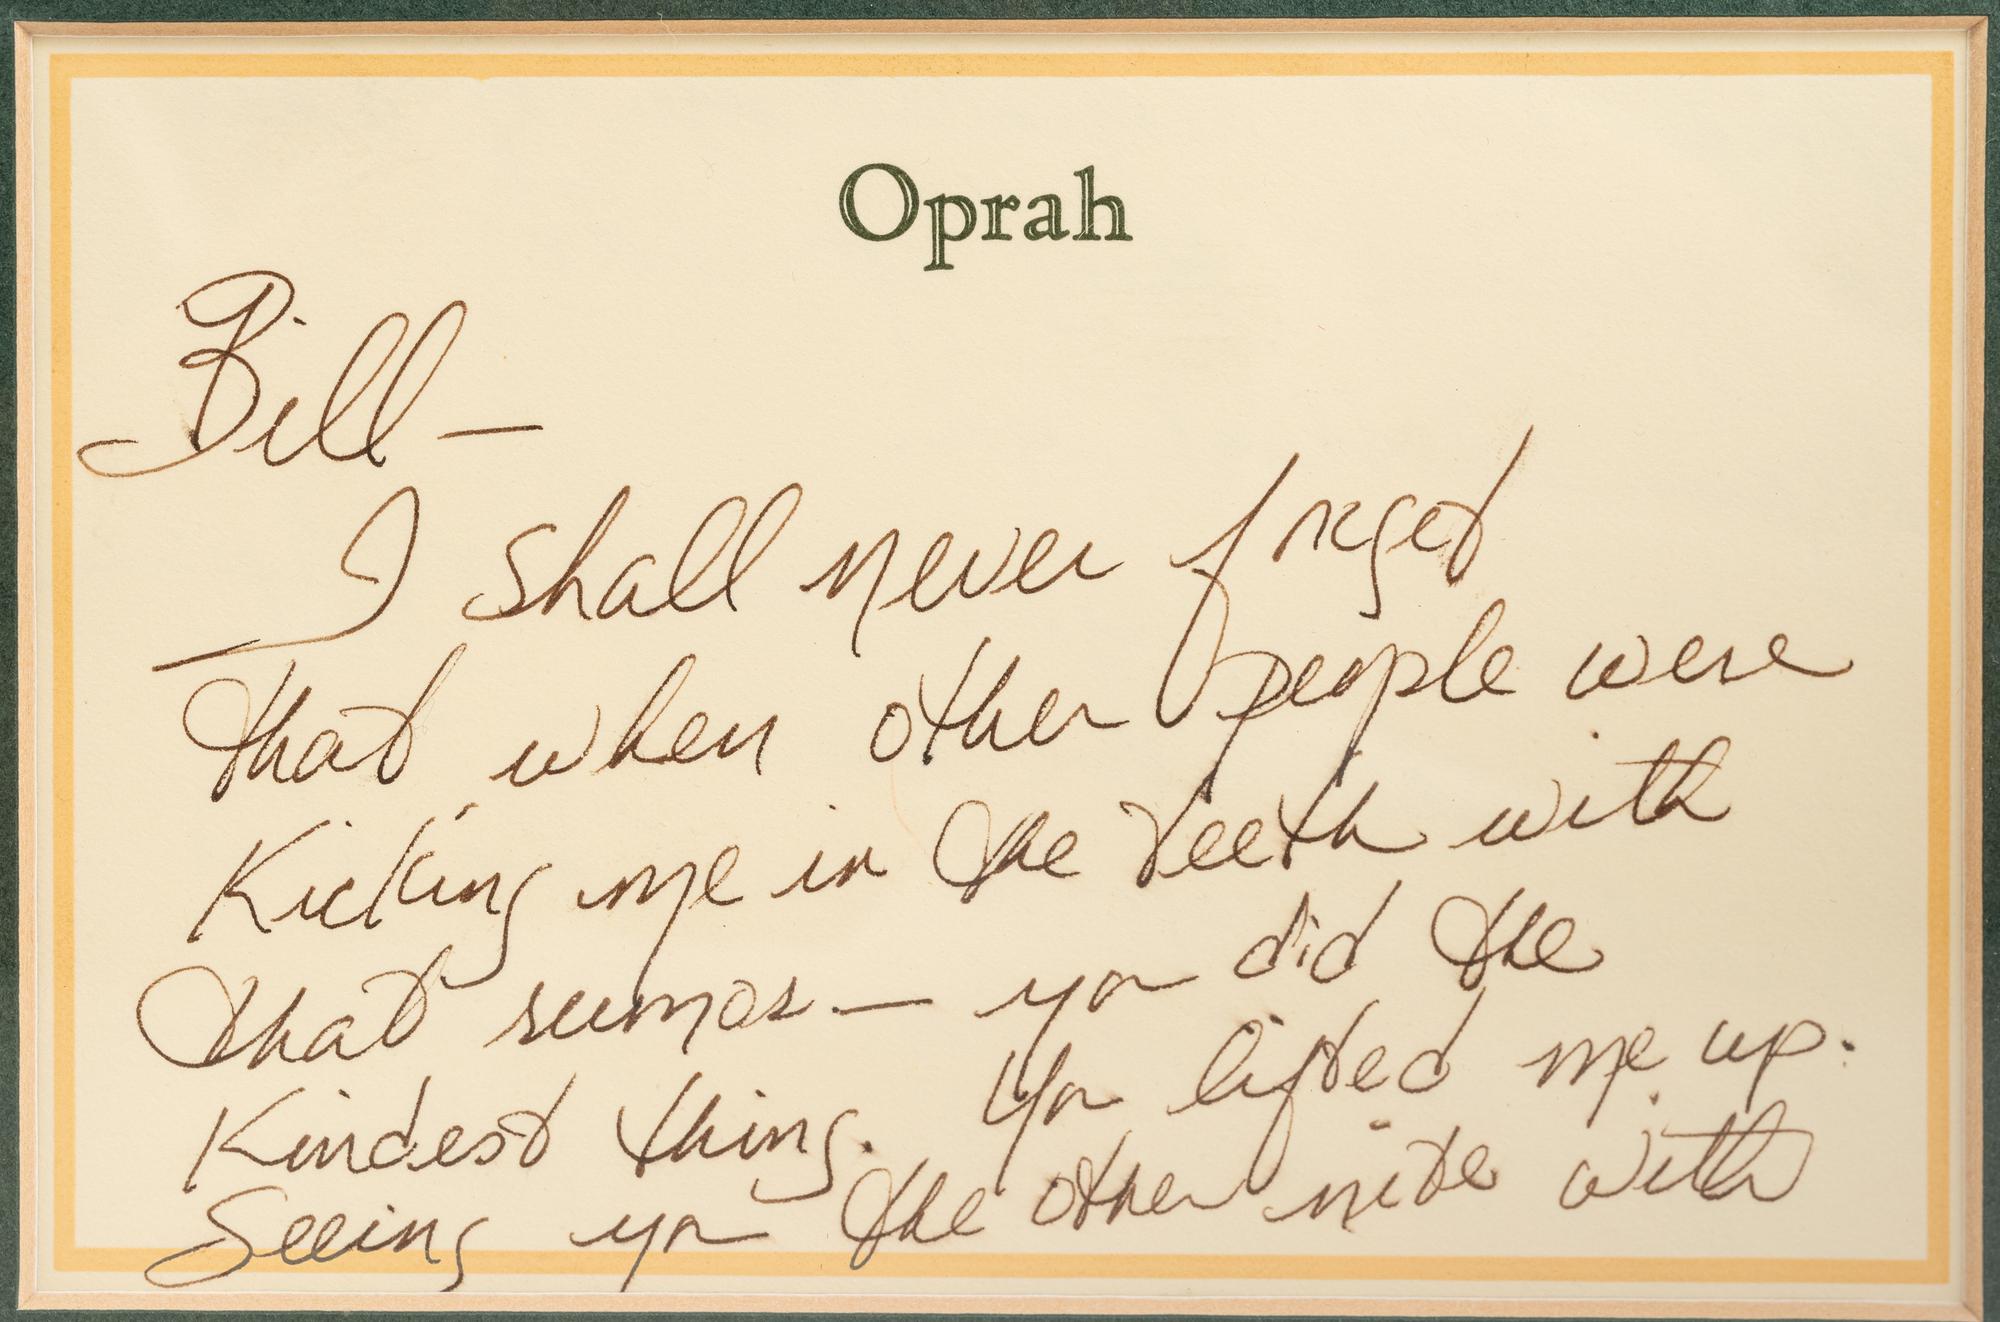 Oprah
Bill—
I shall never forget
that when other people were
Kicking me in the teeth with
that rumor— you did the
Kindest thing. You lifted me up.
Seeing you the other nite with